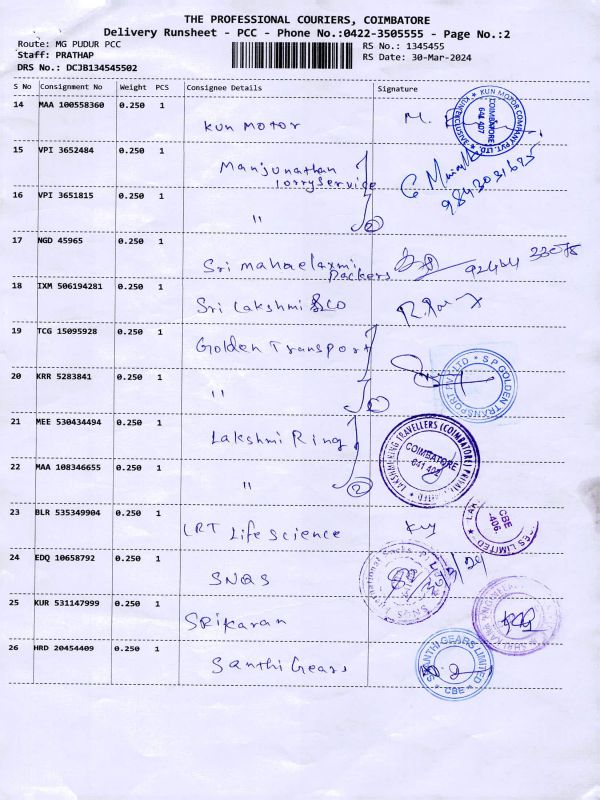 THE PROFESSIONAL COURIERS, COIMBATORE
Delivery Runsheet - PCC - Phone No.:0422-3505555 - Page No.:2
Route: MG PUDUR PCC
RS No.: 1345455
Staff: PRATHAP
RS Date: 30-Mar-2024
DRS No.: DCJB134545502
S No Consignment No Weight PCS Consignee Details Signature
14 MAA 100558360 0.250 1 Kun Motor M.
KUN MOTOR COMPANY PVT. LTD. COIMBATORE 641 407
15 VPI 3652484 0.250 1 Manjunathan
lorry service
9843031695
16 VPI 3651815 0.250 1 " 2
17 NGD 45965 0.250 1 Sri mahaelaxmi
Packers
92444 33078
18 IXM 506194281 0.250 1 Sri Lakshmi & CO
19 TCG 15095928 0.250 1 Golden Transport
20 KRR 5283841 0.250 1 "
S P GOLDEN TRANSPORT PVT LTD
21 MEE 530434494 0.250 1 Lakshmi Ring
LAKSHMI RING TRAVELLERS (COIMBATORE) PRIVATE LIMITED
COIMBATORE
641 402
22 MAA 108346655 0.250 1 " 2
23 BLR 535349904 0.250 1 LRT Life Science
CBE
-406
LIMITED
24 EDQ 10658792 0.250 1 SNQS
25 KUR 531147999 0.250 1 SRikaran
26 HRD 20454409 0.250 1 Santhi Gears
SANTHI GEARS LIMITED
CBE